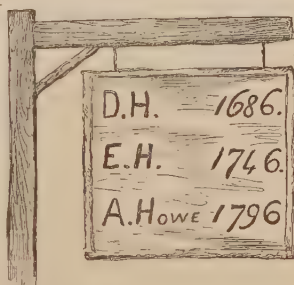 D.H. 1686.
E.H. 1746.
A. Howe 1796